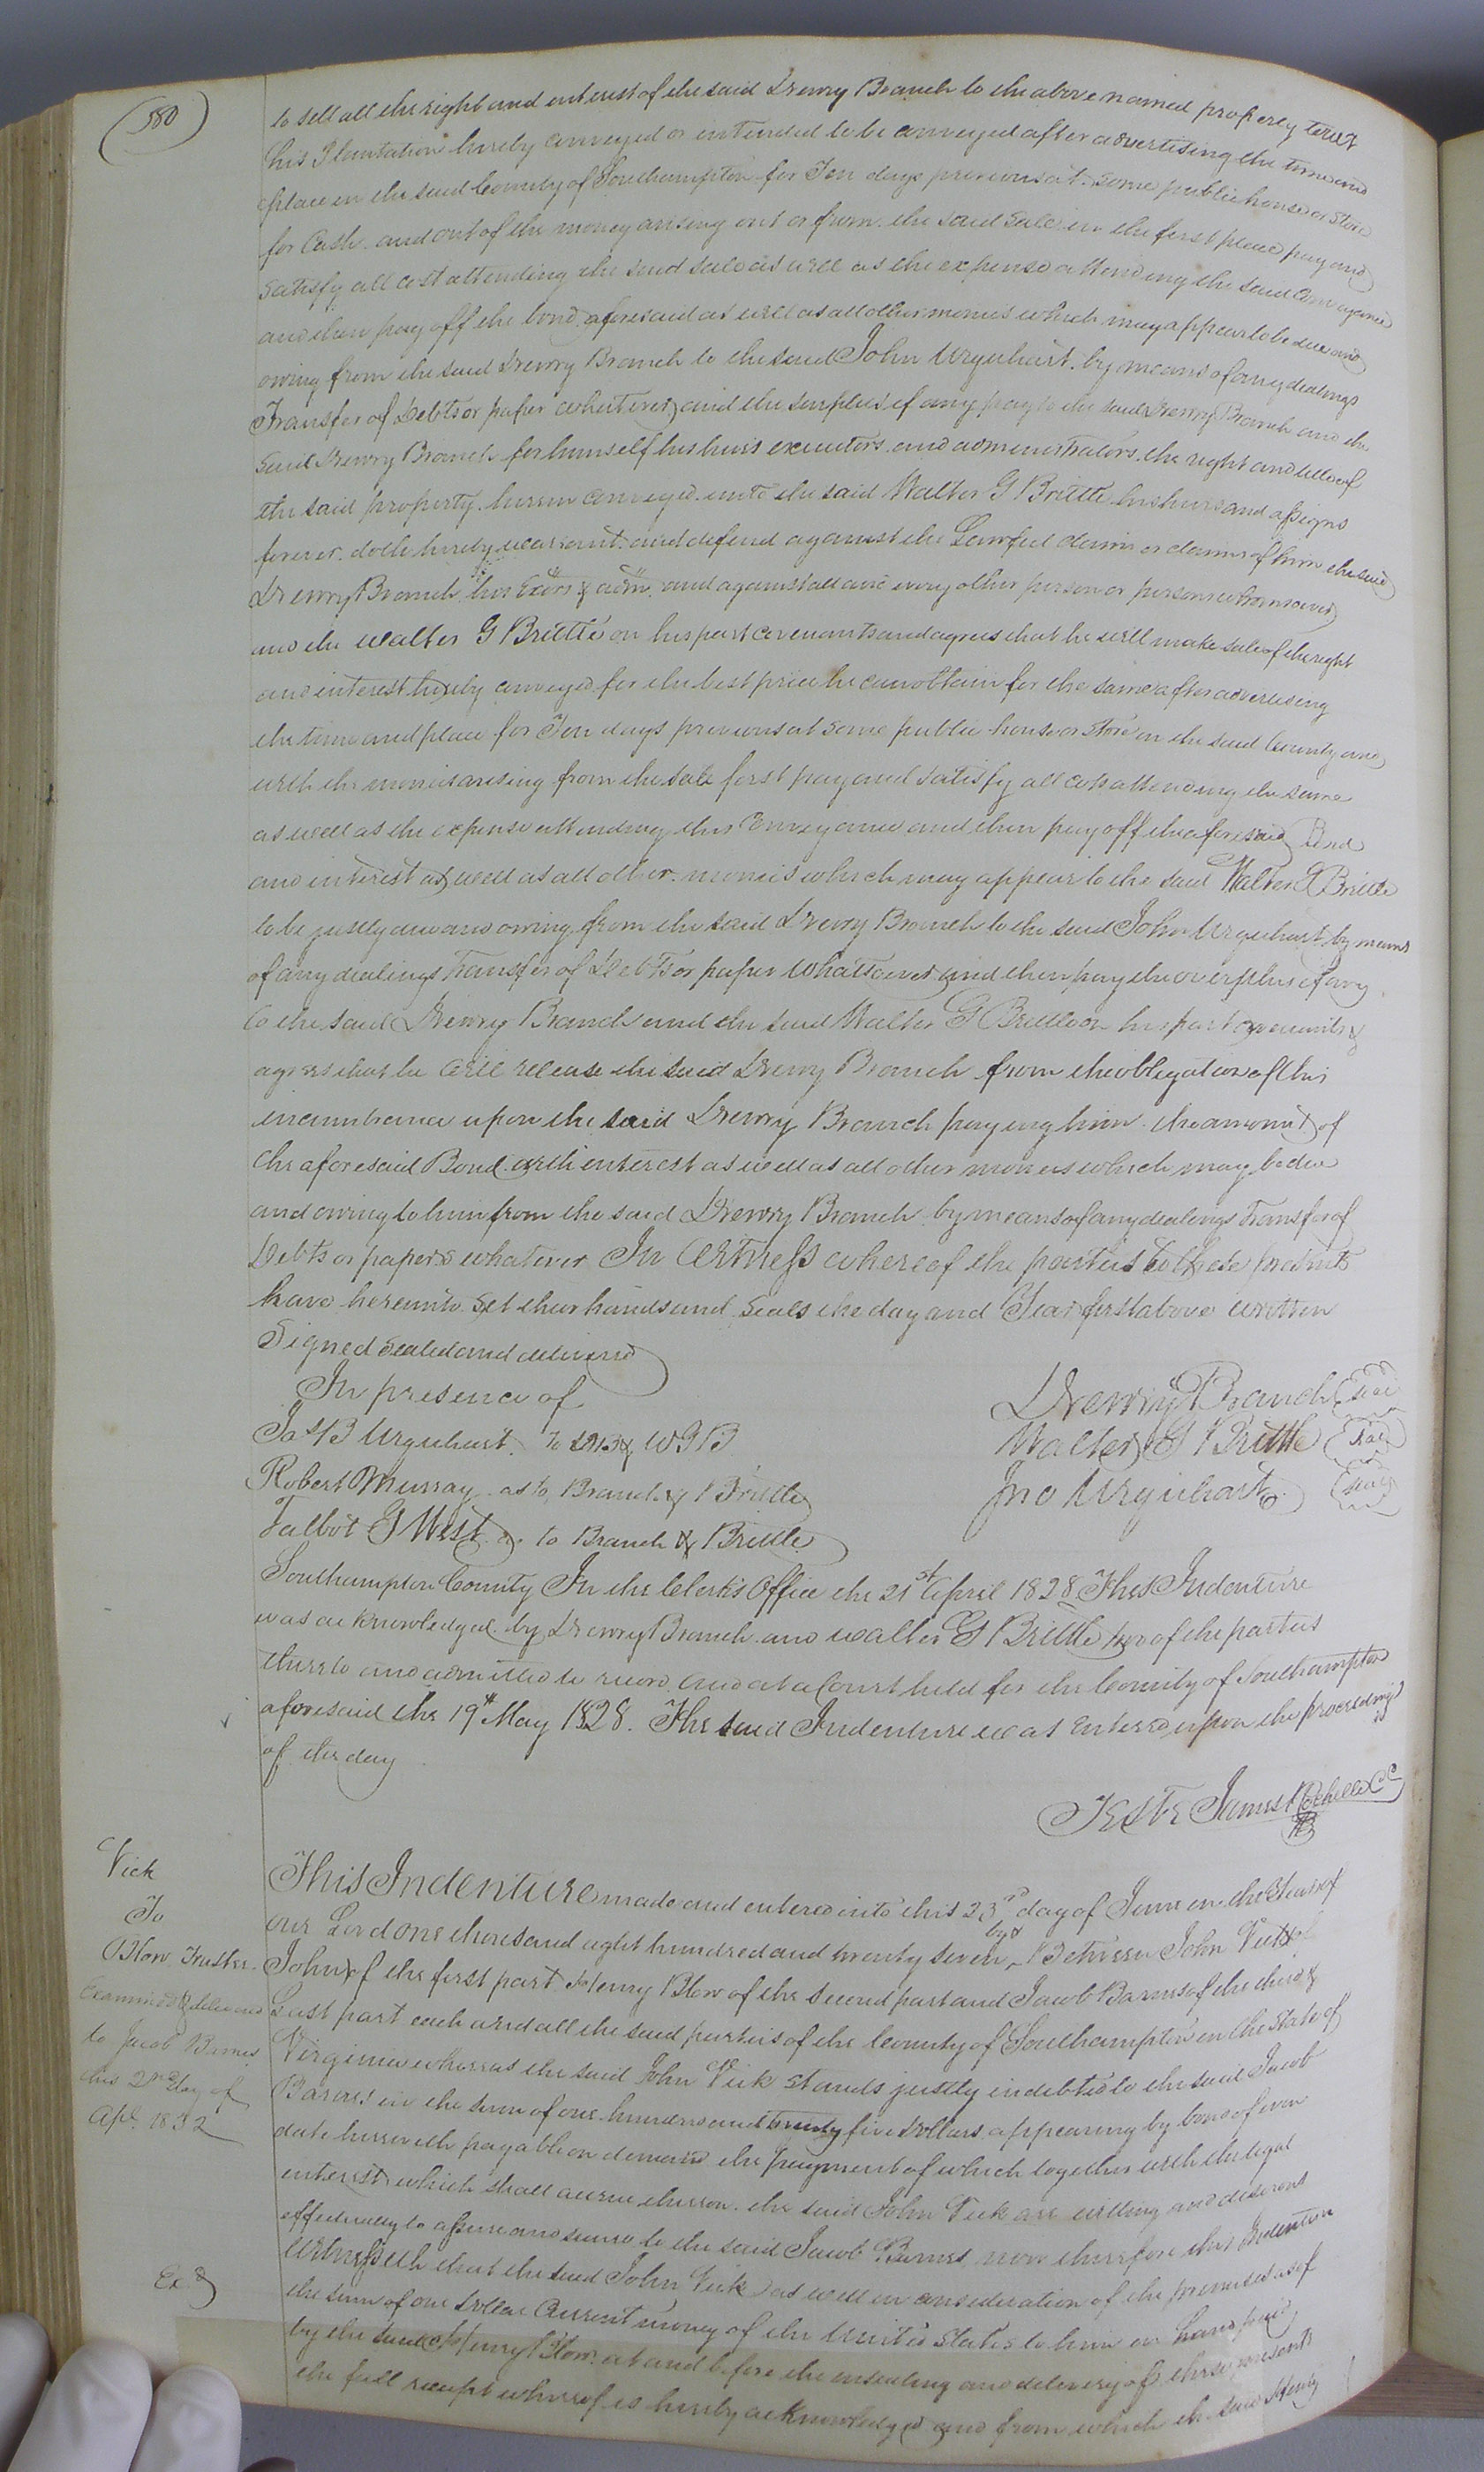 580
to sell all the right and interest of the said Drewry Branch to the above named property towit
his Plantation hereby conveyed or intended to be conveyed after advertising the time and
place in the said County of Southampton for Ten days previous at some public house or Store
for Cash. and out of the money arising out or from the said Sale in the first place pay and
Satisfy all cost attending the said sale as well as the expense attending the said Conveyance
and then pay off the bond aforesaid as well as all other monies which may appear to be due and
owing from the said Drewry Branch to the said John Urquhart. by means of any dealings
Transfer of Debts or paper whatever, and the surplus if any pay to the said Drewry Branch and the
said Drewry Branch for himself his heirs executors. and administrators. the right and title of
the said property. herein conveyed. unto the said Walter G Brittle his heirs and assigns
forever. doth hereby warrant. and defend against the Lawful claim or claims of him the said
Drewry Branch his Exors & adm. and against all and every other person or persons whomsoever
and the Walter G Brittle on his part covenants and agrees that he will make sale of the right
and interest hereby conveyed for the best price he can obtain for the same after advertising
the time and place for Ten days previous at some public house or Store in the said County and
with the monies arising from the sale first pay and satisfy all costs attending the same
as well as the expense attending this Conveyance and then pay off the aforesaid Bond
and interest as well as all other monies which may appear to the said Walter G Brittle
to be justly due and owing from the said Drewry Branch to the said John Urquhart by means
of any dealings Transfer of Debts or paper whatsoever and then pay the overplus if any
to the said Drewry Branch and the said Walter G Brittle on his part covenants &
agrees that he will release the said Drewry Branch from the obligation of this
incumbrance upon the said Drewry Branch paying him the amount of
the aforesaid Bond with interest as well as all other monies which may be due
and owing to him from the said Drewry Branch by means of any dealings Transfer of
Debts or papers whatever In Witness whereof the parties to these presents
have hereunto set their hands and Seals the day and Year first above written
Signed Sealed and delivered
In presence of
Drewry Branch Seal
Jas B Urquhart to DB & WGB
Walter G Brittle Seal
Robert Murray as to Branch & Brittle
Jno Urquhart Seal
Talbot G West as to Branch & Brittle
Southampton County In the Clerk's Office the 21st April 1828 This Indenture
was acknowledged by Drewry Branch and Walter G Brittle two of the parties
thereto and admitted to record And at a Court held for the County of Southampton
aforesaid the 19th May 1828. The said Indenture was entered upon the proceedings
of the day
Teste James Rochelle CC
Vick
To
Blow Trustee
Examined & delivered
to Jacob Barnes
this 2nd day of
Apl. 1832
Exd
This Indenture made and entered into this 23rd day of June in the Year of
our Lord one thousand eight hundred and twenty seven by & Between John Vick of
John of the first part Henry Blow of the second part and Jacob Barnes of the third &
Last part each and all the said parties of the County of Southampton in the State of
Virginia whereas the said John Vick stands justly indebted to the said Jacob
Barnes in the sum of one hundred and twenty five Dollars appearing by bond of even
date herewith payable on demand the payment of which together with the legal
interest which shall accrue thereon. the said John Vick are willing and desirous
effectually to assure and secure to the said Jacob Barnes now therefore this Indenture
Witnesseth that the said John Vick as well in consideration of the premises as of
the sum of one Dollar Current money of the United States to him in hand paid
by the said Henry Blow at and before the ensealing and delivery of these presents
the full receipt whereof is hereby acknowledged and from which the said Henry